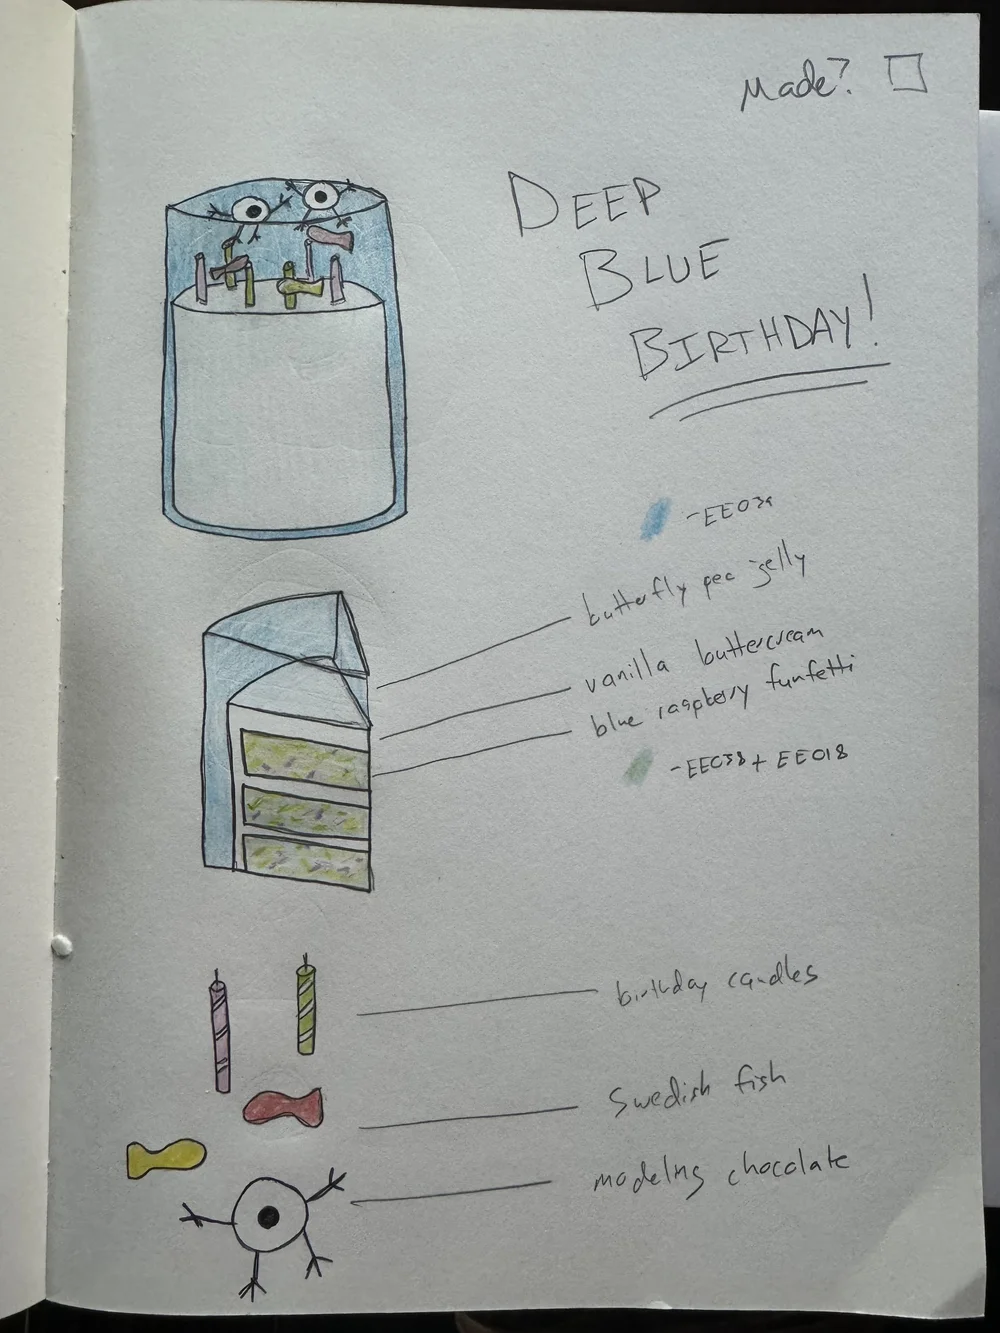 Made?
DEEP
BLUE
BIRTHDAY!
butterfly pea jelly
vanilla buttercream
blue raspberry funfetti
-EE038 + EE018
birthday candles
Swedish fish
modeling chocolate